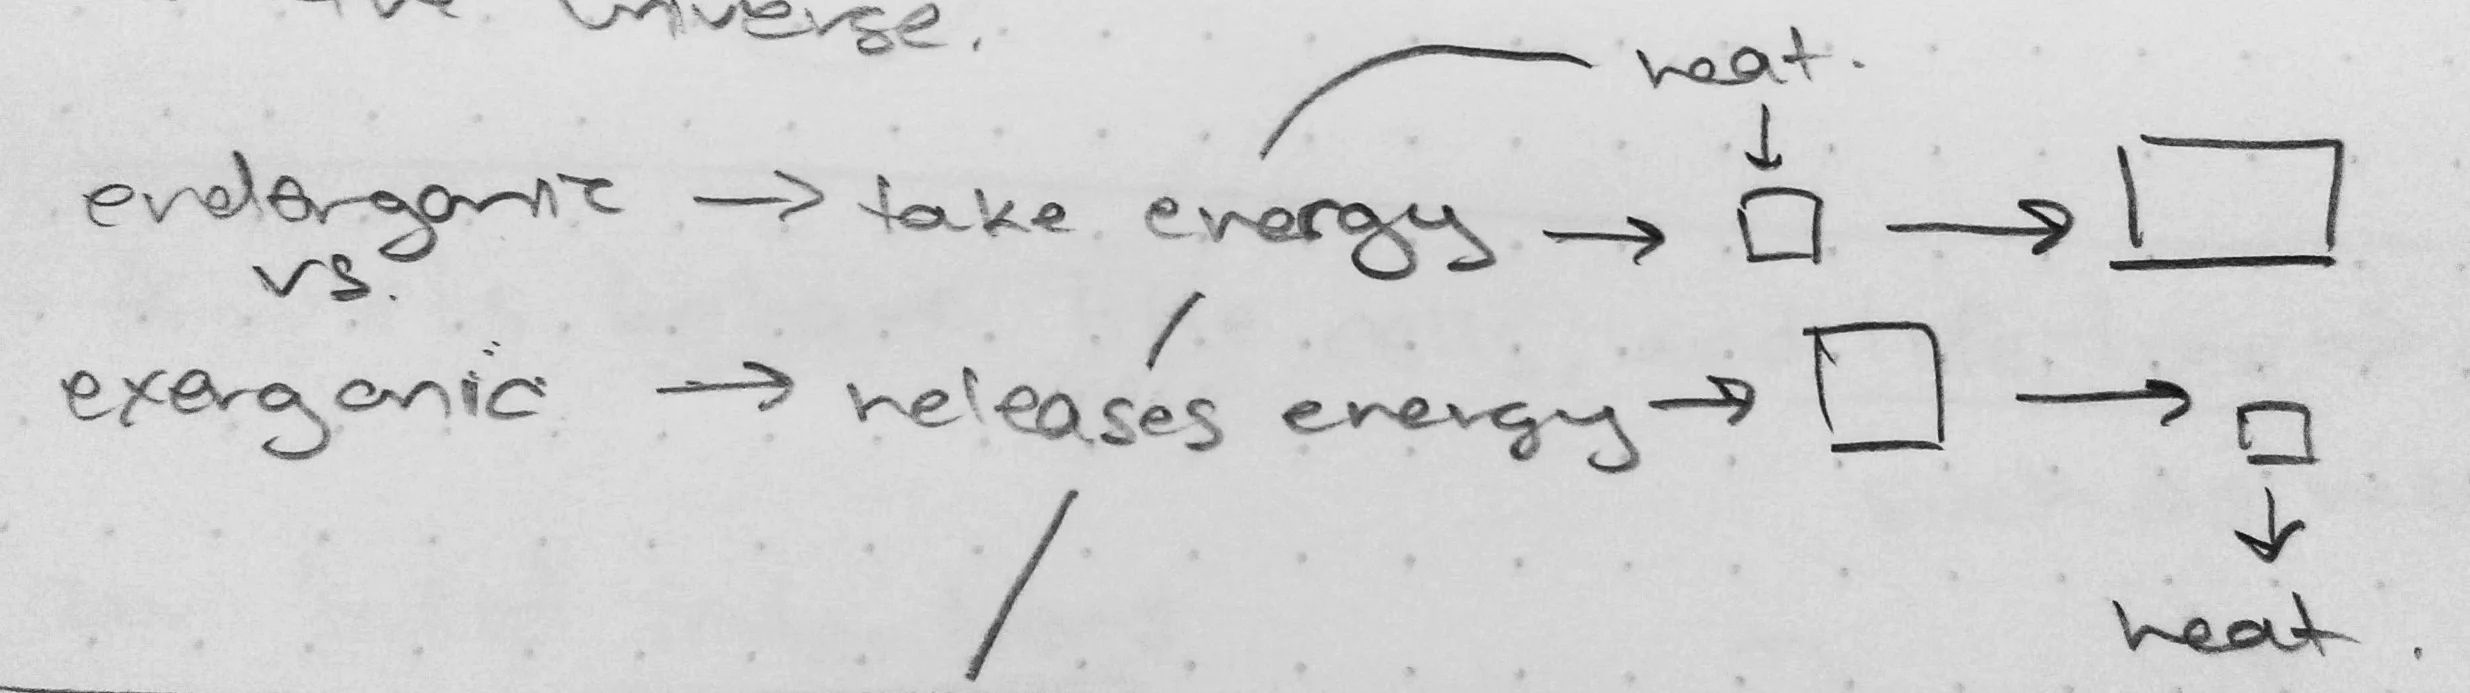 the universe.
heat.
endorganic → take energy → □ → □
vs.
exerganic → releases energy → □ → □
heat.